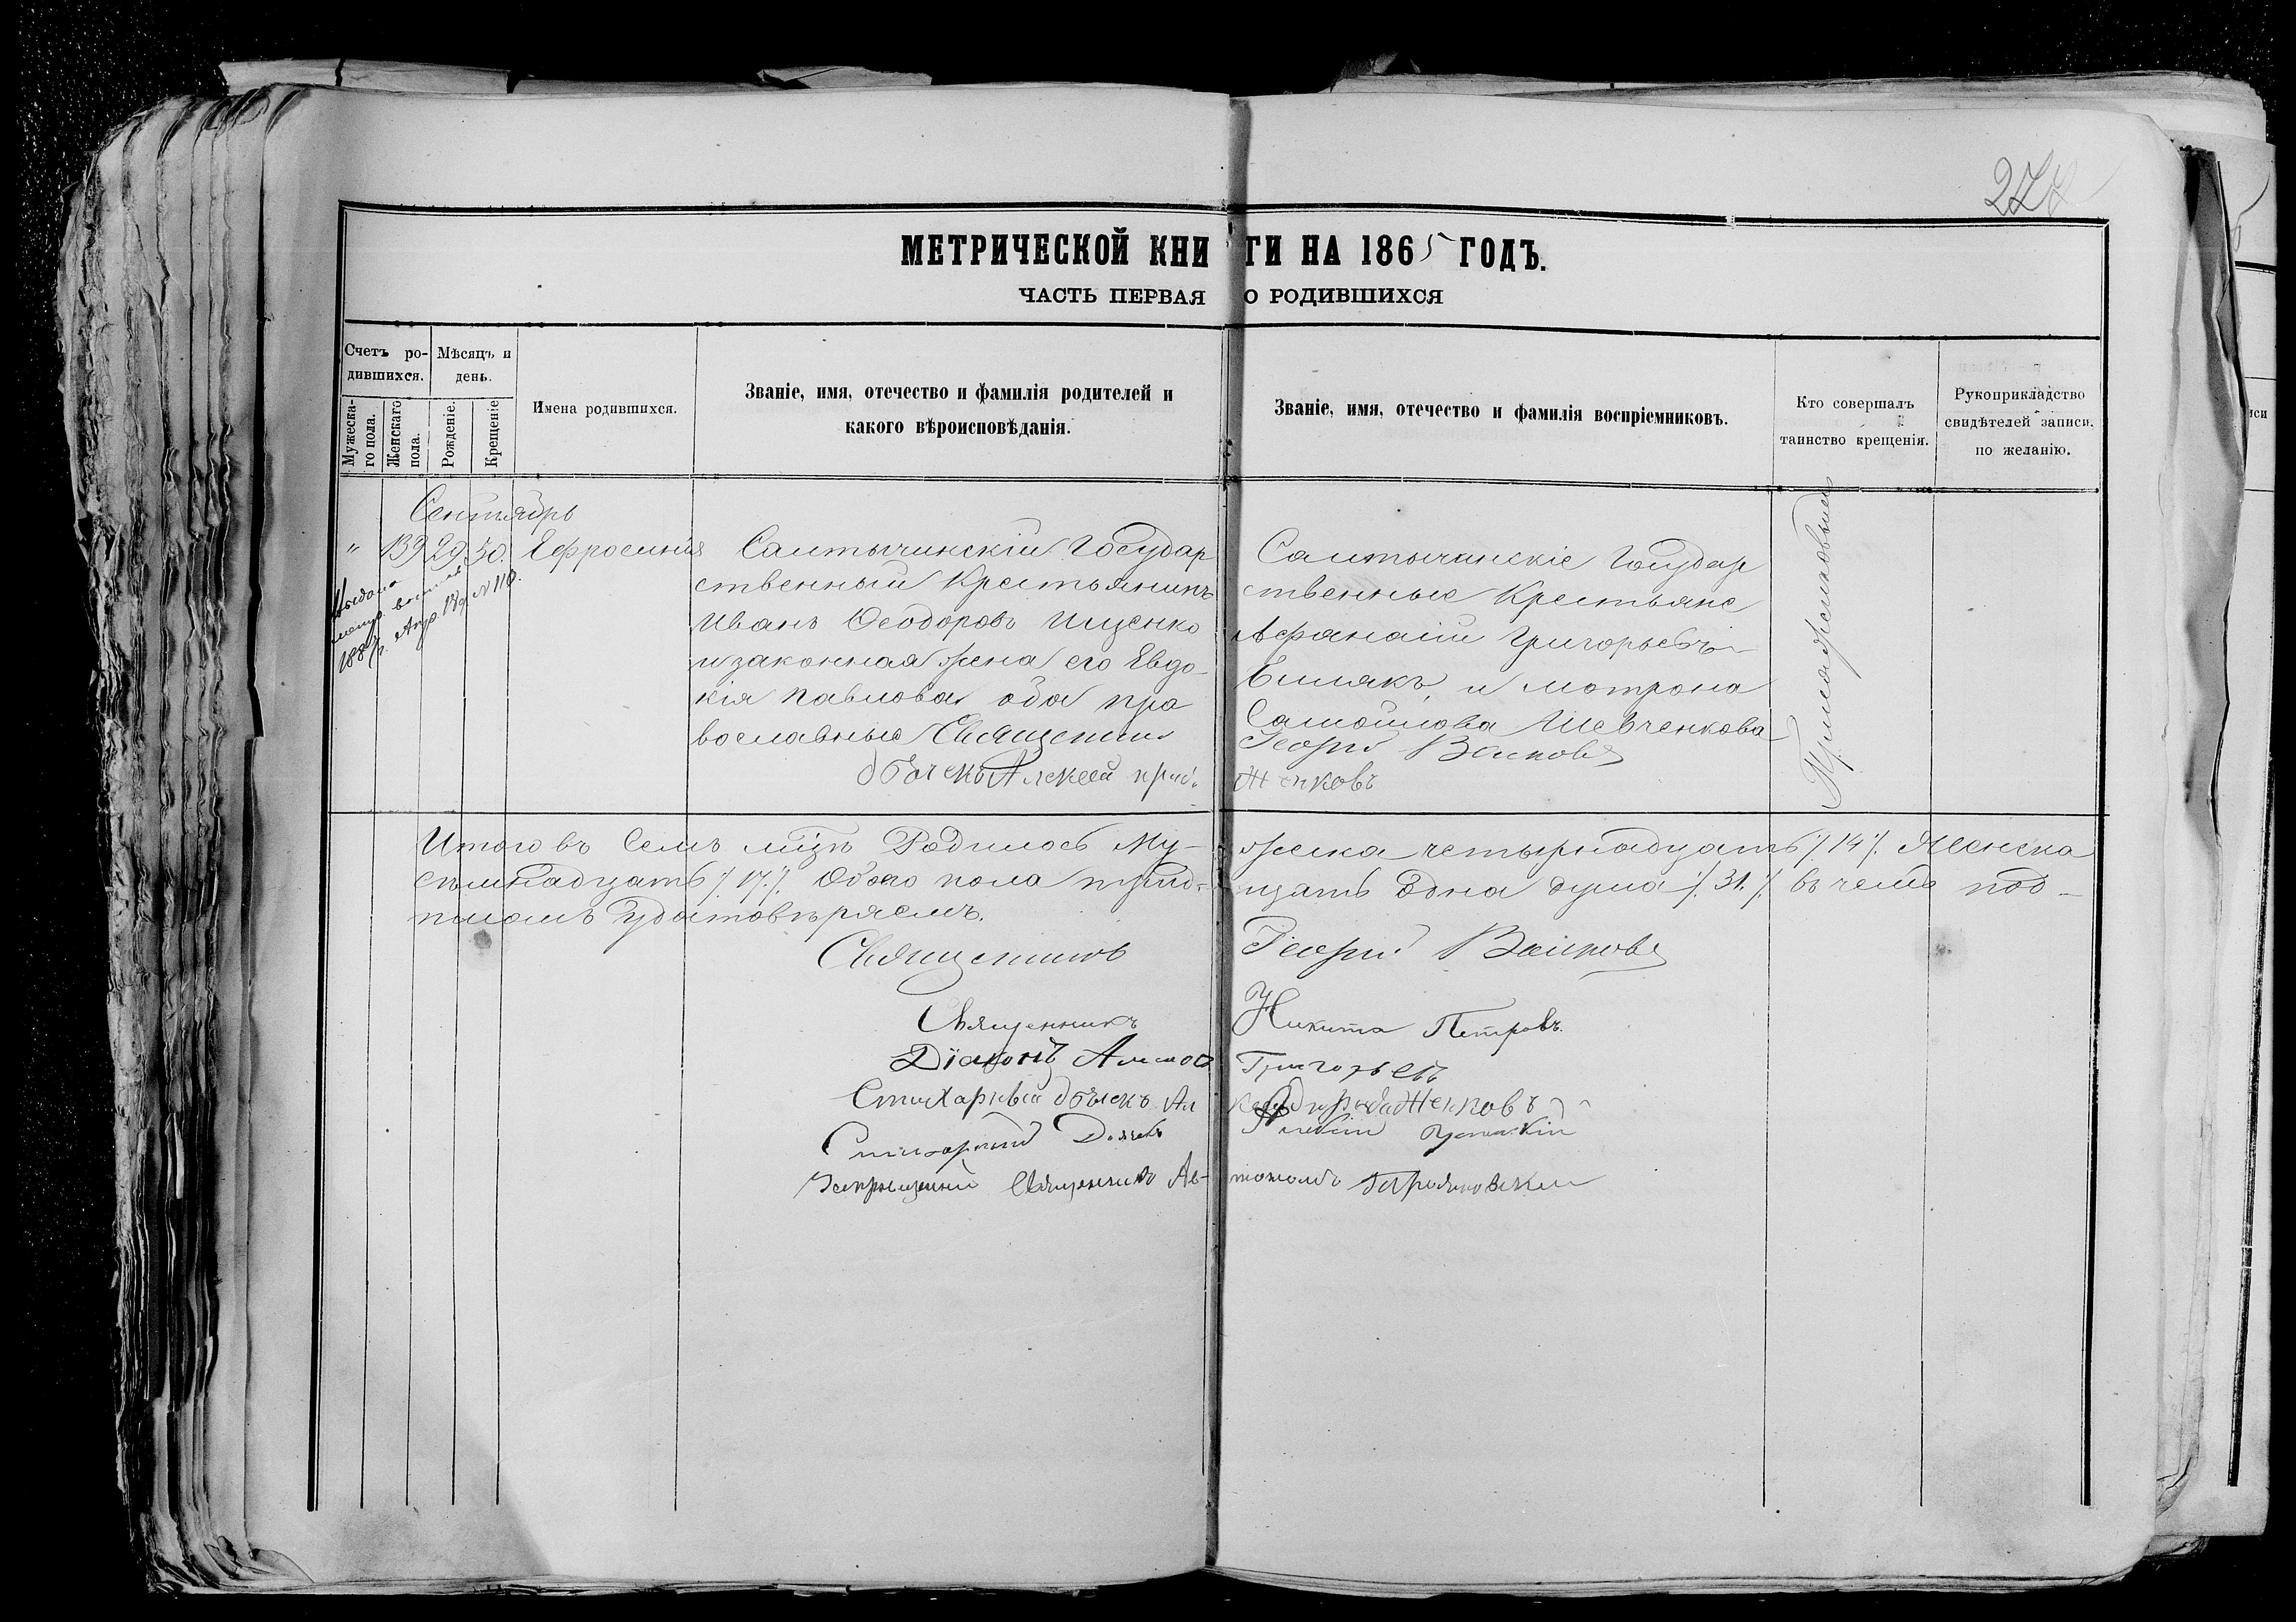 277
МЕТРИЧЕСКОЙ КНИГИ НА 1865 ГОДЪ.
ЧАСТЬ ПЕРВАЯ О РОДИВШИХСЯ
Счетъ ро-
дившихся.
Мужеска-
го пола.
Женскаго
пола.
Мѣсяцъ и
день.
Рожденіе.
Крещеніе
Имена родившихся.
Званіе, имя, отечество и фамилія родителей и
какого вѣроисповѣданія.
Званіе, имя, отечество и фамилія воспріемниковъ.
Кто совершалъ
таинство крещенія.
Рукоприкладство
свидѣтелей записи.
по желанію.
Сентябрь
" 139 29. 30. Ефросинія
Выдано
метр.
188 г. № 110.
Салтычинскій Государ
ственный Крестьянинъ
Иванъ Ѳеодоровъ Ищенко
и законная жена его Евдо-
кія Павлова оба пра
вославные Священник
дьячекъ Алексей
Салтычинскіе Государ
ственные Крестьяне
Афанасій Григорьевъ
и Мотрона
Самойлова Шевченкова
Георгій
женковъ
Итого въ Семъ мцѣ Родилось Му- жеска четырнадцать /. 14 /. Женска
семнадцать /. 17. /. Обоего пола трид- цать одна душа /. 31. /. въ чемъ под-
писомъ удостовѣряемъ.
Священникъ Георгій
Священникъ Никита Петровъ.
Діаконъ Григорьевъ
Стихарный дьячекъ Ал
Стихарный Дьячекъ
Священникъ Ав- тономъ